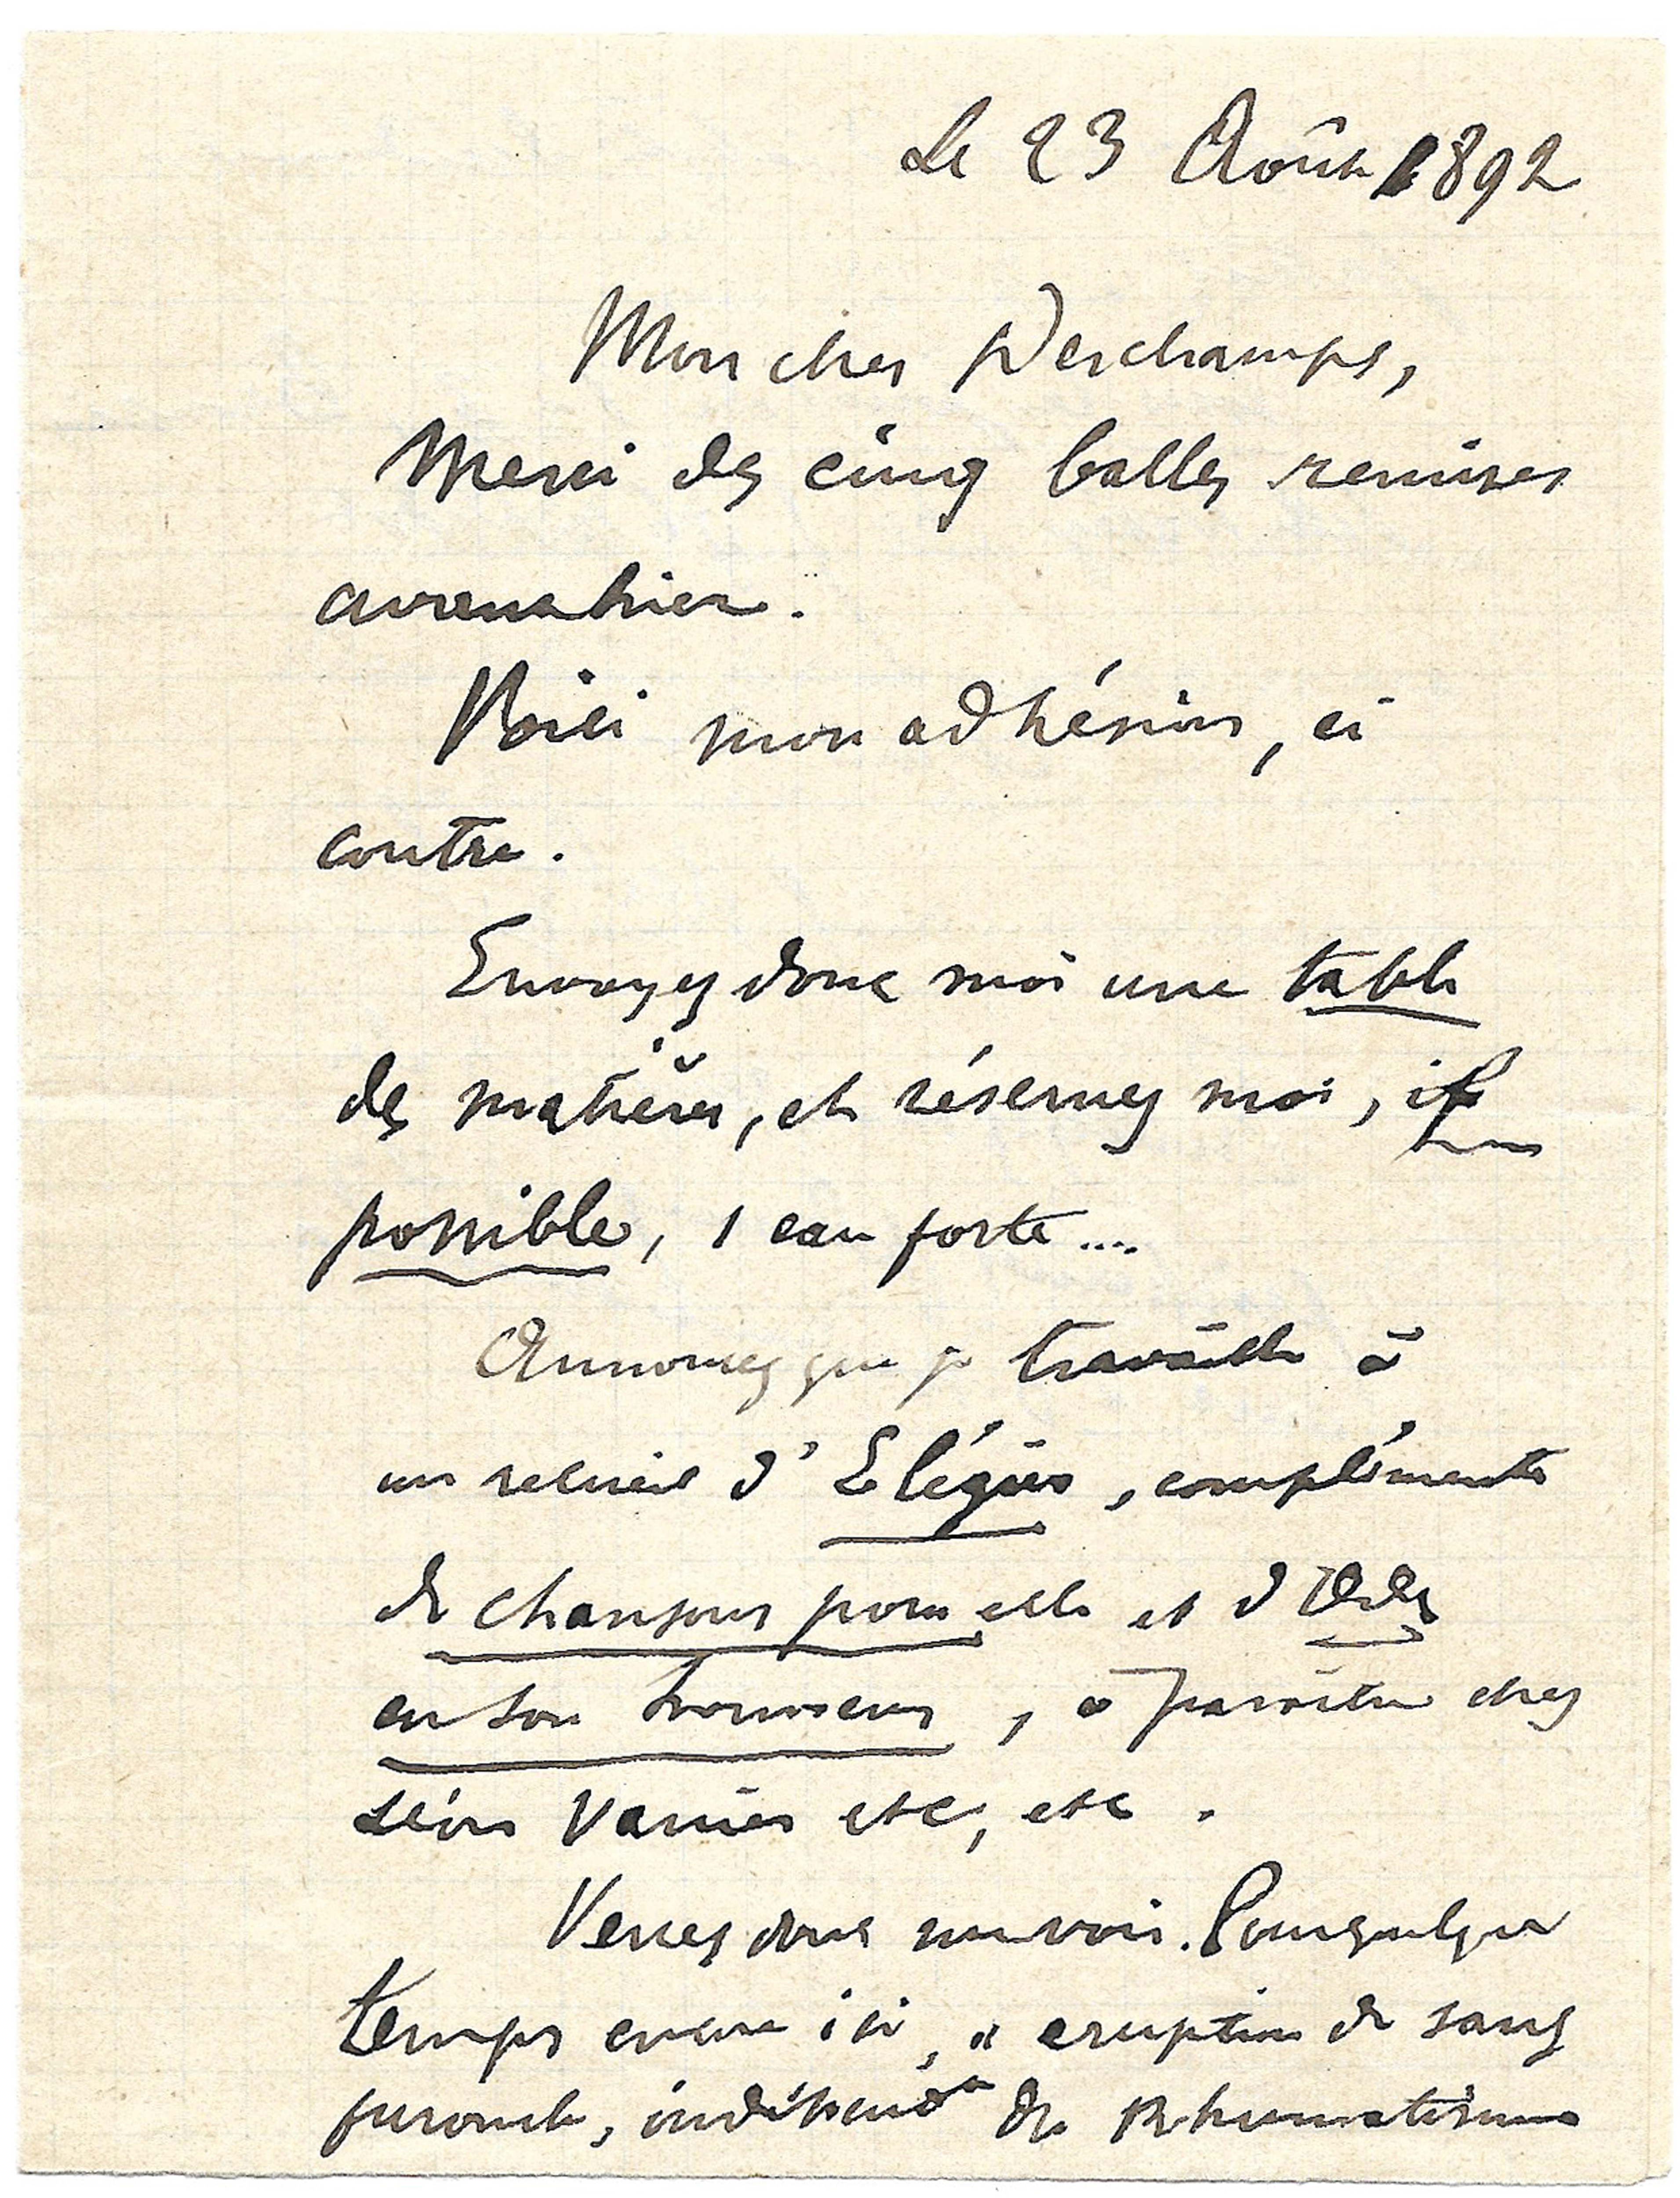 Le 23 Août 1892
Mon cher Deschamps,
Merci des cinq balles remises
avant hier.
Voici mon adhésion, ci
contre.
Envoyez donc moi une table
des matières, et réservez moi, if
possible, 1 eau forte....
Annoncez que je travaille à
un recueil d'Elégies, complément
de chansons pour elle et d'Odes
en son honneur, à paraître chez
Léon Vanier etc, etc.
Venez donc me voir. Pour quelque
temps encore ici, " éruption de sang
furoncle, indépendt de Rhumatisme